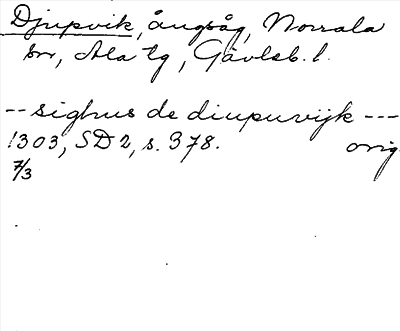 Djupvik, ångsåg, Norrala
sn, Ala tg, Gävleb. l.
-- sighus de diupuvijk ---
1303, SD 2, s. 378. orig
7/3